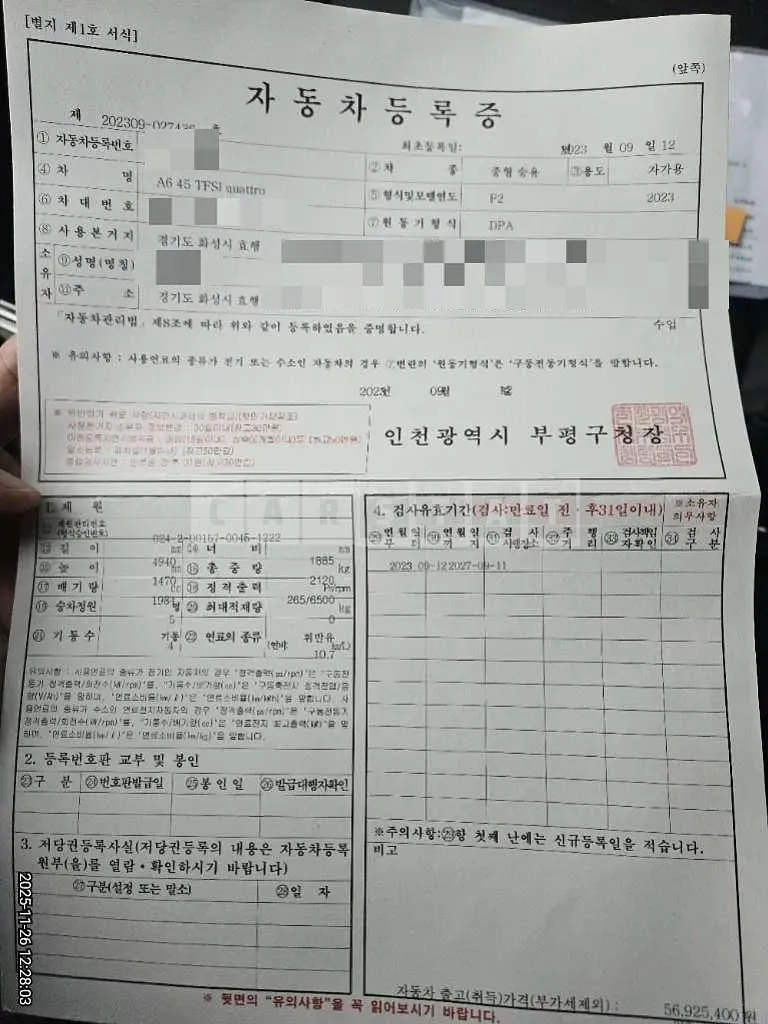 [별지 제1호 서식]
(앞쪽)
자동차등록증
제 202309-027436 호
최초등록일: 2023 월 09 일 12
① 자동차등록번호
② 차종 중형 승용 ③ 용도 자가용
④ 차명 A6 45 TFSI quattro
⑤ 형식및모델연도 F2 2023
⑥ 차대번호
⑦ 원동기형식 DPA
⑧ 사용본거지 경기도 화성시 효행
소유자 ⑨ 성명(명칭)
⑪ 주소 경기도 화성시 효행
「자동차관리법」 제8조에 따라 위와 같이 등록하였음을 증명합니다.
수입
※ 유의사항 : 사용연료의 종류가 전기 또는 수소인 자동차의 경우 ⑦번란의 '원동기형식'은 '구동전동기형식'을 말합니다.
2023년 09월
인천광역시 부평구청장
1. 제원
제원관리번호
(형식승인번호) 024-2-00157-0045-1222
길이 4940 mm 너비 1885 mm
높이 1470 총중량 2120 kg
배기량 1984 정격출력 265/6500 Ps/rpm
승차정원 5 명 최대적재량 0 kg
㉑ 기통수 4 기통 ㉒ 연료의 종류 휘발유 (연비: 10.7 km/L)
유의사항 : 사용연료의 종류가 전기인 자동차의 경우 "정격출력(ps/rpm)"은 "구동전
동기 정격출력/회전수(kW/rpm)"를, "기통수/배기량(cc)"은 "구동축전지 정격전압/용
량(V/Ah)"을 말하며, "연료소비율(km/ℓ)"은 "연료소비율(km/kWh)"을 말합니다. 사
용연료의 종류가 수소인 연료전지자동차의 경우 "정격출력(ps/rpm)"은 "구동전동기
정격출력/회전수(kW/rpm)"를, "기통수/배기량(cc)"은 "연료전지 최고출력(kW)"을 말
하며, "연료소비율(km/ℓ)"은 "연료소비율(km/kg)"을 말합니다.
2. 등록번호판 교부 및 봉인
㉓ 구분 ㉔ 번호판발급일 ㉕ 봉인일 ㉖ 발급대행자확인
3. 저당권등록사실(저당권등록의 내용은 자동차등록
원부(을)를 열람·확인하시기 바랍니다)
㉗ 구분(설정 또는 말소) ㉘ 일자
4. 검사유효기간(검사:만료일 전·후31일이내) ※소유자 의무사항
㉙ 연월일부터 ㉚ 연월일까지 ㉛ 검사시행장소 ㉜ 주행거리 ㉝ 검사책임자확인 ㉞ 검사구분
2023-09-12 2027-09-11
※주의사항:㉙항 첫째 난에는 신규등록일을 적습니다.
비고
자동차 출고(취득)가격(부가세제외) : 56,925,400 원
※ 뒷면의 "유의사항"을 꼭 읽어보시기 바랍니다.
2025-11-26 12:28:03